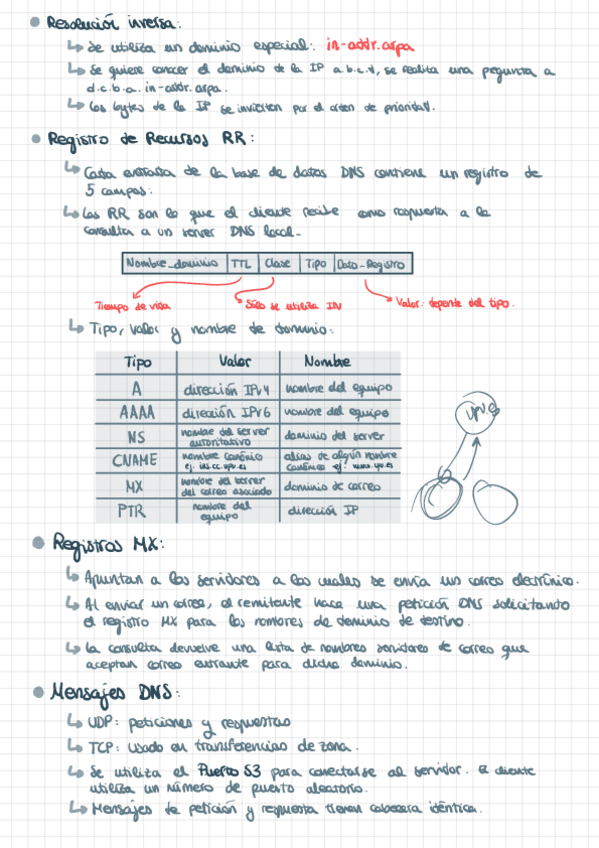 Resolución inversa:
Se utiliza un dominio especial: in-addr.arpa
Se quiere conocer el dominio de la IP a.b.c.d, se realiza una pregunta a
d.c.b.a.in-addr.arpa.
Los bytes de la IP se invierten por el orden de prioridad.
Registro de Recursos RR:
Cada entrada de la base de datos DNS contiene un registro de
5 campos:
Los RR son lo que el cliente recibe como respuesta a la
consulta a un server DNS local.
Nombre_dominio TTL Clase Tipo Dato_Registro
Tiempo de vida Sólo se utiliza IN Valor: depende del tipo.
Tipo, valor y nombre de dominio:
Tipo Valor Nombre
A dirección IPv4 nombre del equipo
AAAA dirección IPv6 nombre del equipo
NS nombre del server autoritativo dominio del server
CNAME nombre canónico alias de algún nombre
ej: ias.cc.upv.es canónico ej: www.upv.es
MX nombre del server del correo asociado dominio de correo
PTR nombre del equipo dirección IP
upv.es
Registros MX:
Apuntan a los servidores a los cuales se envía un correo electrónico.
Al enviar un correo, el remitente hace una petición DNS solicitando
el registro MX para los nombres de dominio de destino.
La consulta devuelve una lista de nombres servidores de correo que
aceptan correo entrante para dicho dominio.
Mensajes DNS:
UDP: peticiones y respuestas
TCP: usado en transferencias de zona.
Se utiliza el Puerto 53 para conectarse al servidor. El cliente
utiliza un número de puerto aleatorio.
Mensajes de petición y respuesta tienen cabecera idéntica.